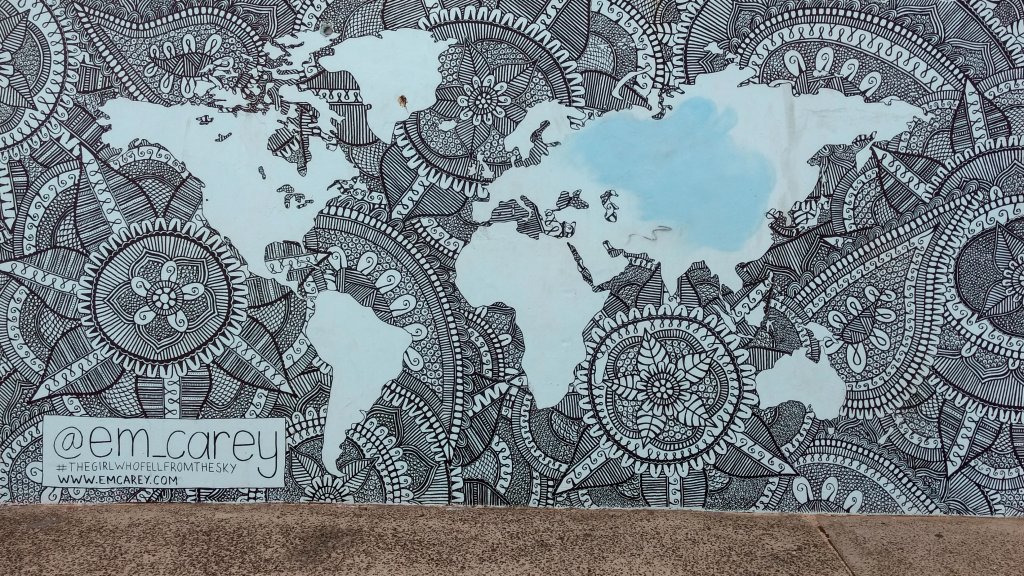 @em_carey
#THEGIRLWHOFELLFROMTHESKY
WWW.EMCAREY.COM